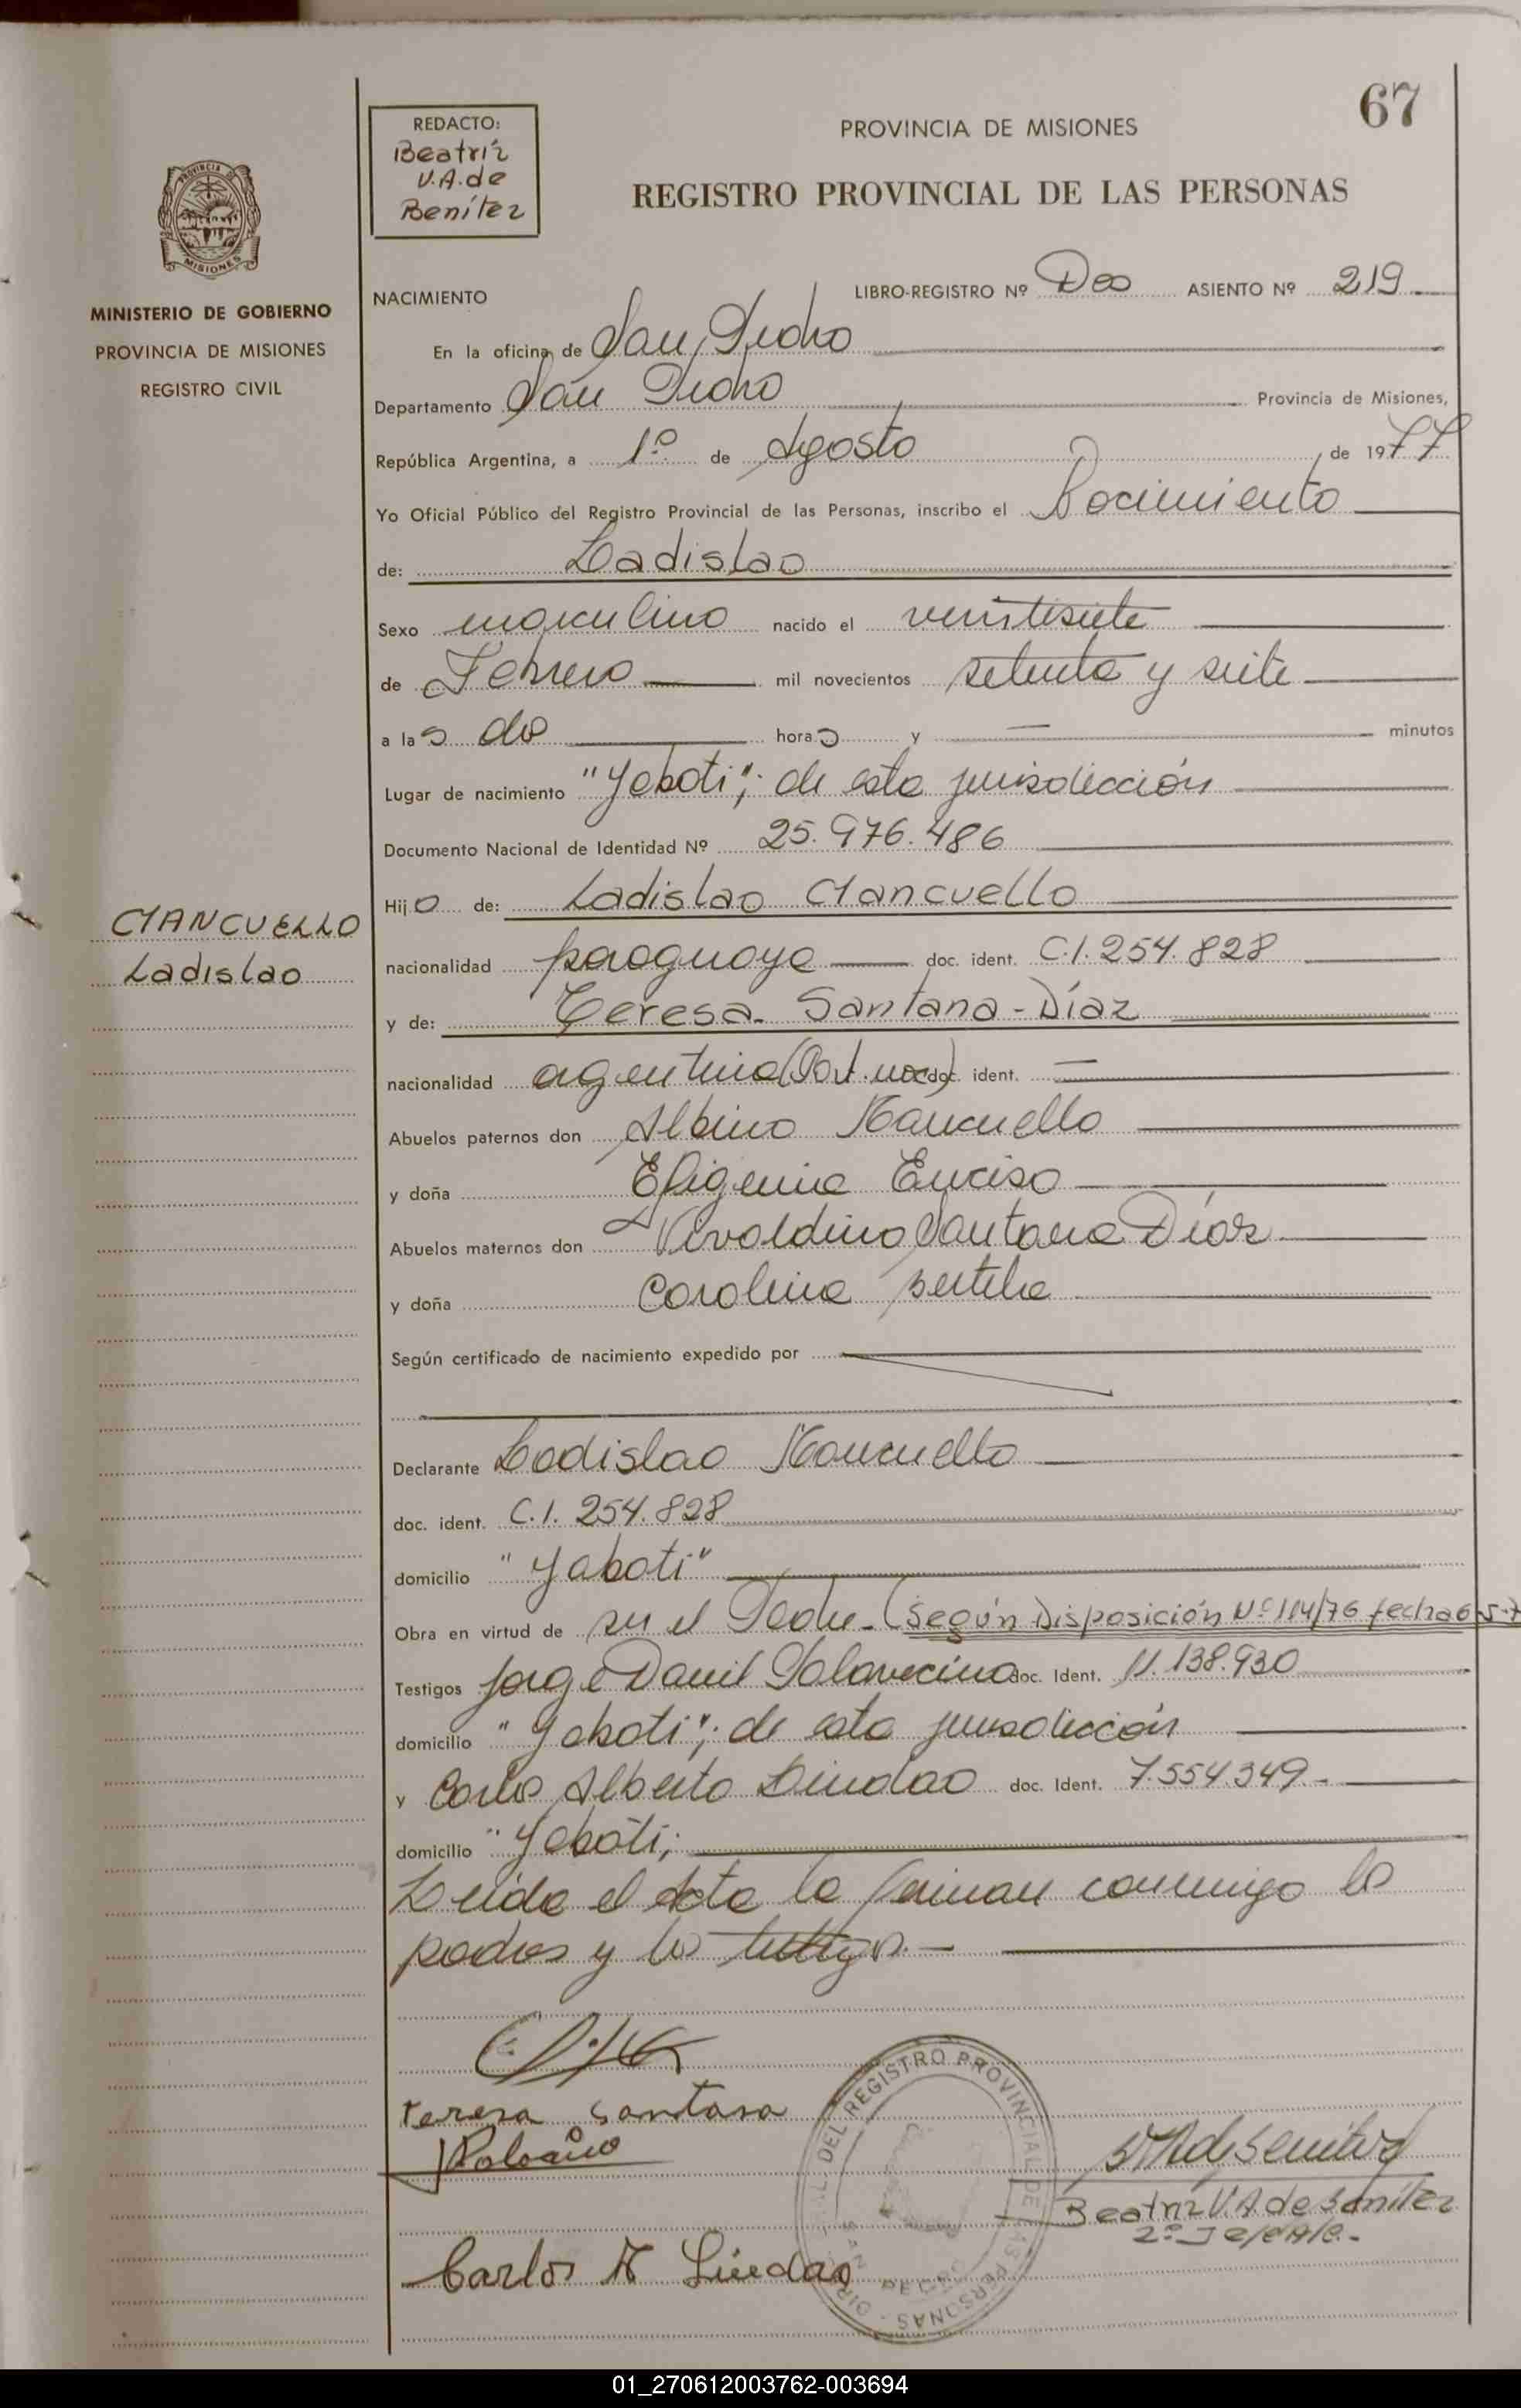 67
REDACTO:
Beatríz
V.A. de
Benítez
PROVINCIA DE MISIONES
REGISTRO PROVINCIAL DE LAS PERSONAS
PROVINCIA DE
MISIONES
MINISTERIO DE GOBIERNO
PROVINCIA DE MISIONES
REGISTRO CIVIL
NACIMIENTO LIBRO-REGISTRO Nº Dos ASIENTO Nº 219
En la oficina de San Pedro
Departamento San Pedro Provincia de Misiones,
República Argentina, a 1º de Agosto de 1977
Yo Oficial Público del Registro Provincial de las Personas, inscribo el Nacimiento
de: Ladislao
Sexo masculino nacido el veintisiete
de Febrero mil novecientos setenta y siete
a las dos horas y — minutos
Lugar de nacimiento "Yabotí"; de esta jurisdicción
Documento Nacional de Identidad Nº 25.976.486
Hijo de: Ladislao Mancuello
MANCUELLO
Ladislao
nacionalidad paraguaya doc. ident. C.I. 254.828
y de: Teresa Santana - Díaz
nacionalidad argentina doc. ident. —
Abuelos paternos don Albino Mancuello
y doña Efigenia Enciso
Abuelos maternos don Santana Díaz
y doña Carolina
Según certificado de nacimiento expedido por
Declarante Ladislao Mancuello
doc. ident. C.I. 254.828
domicilio "Yabotí"
Obra en virtud de ser el Padre - (Según Disposición Nº 114/76 fecha 6-5-7
Testigos Jorge Daniel doc. Ident. 11.138.930
domicilio "Yabotí"; de esta jurisdicción
y Carlos Alberto Lindao doc. Ident. 7.554.349 -
domicilio "Yabotí;
Leída el Acta la firman conmigo los
padres y los testigos. —
Teresa Santana
Carlos A Lindao
Beatriz V. A de Benítez
DEL REGISTRO PROVINCIAL DE LAS PERSONAS
SAN PEDRO
01_270612003762-003694